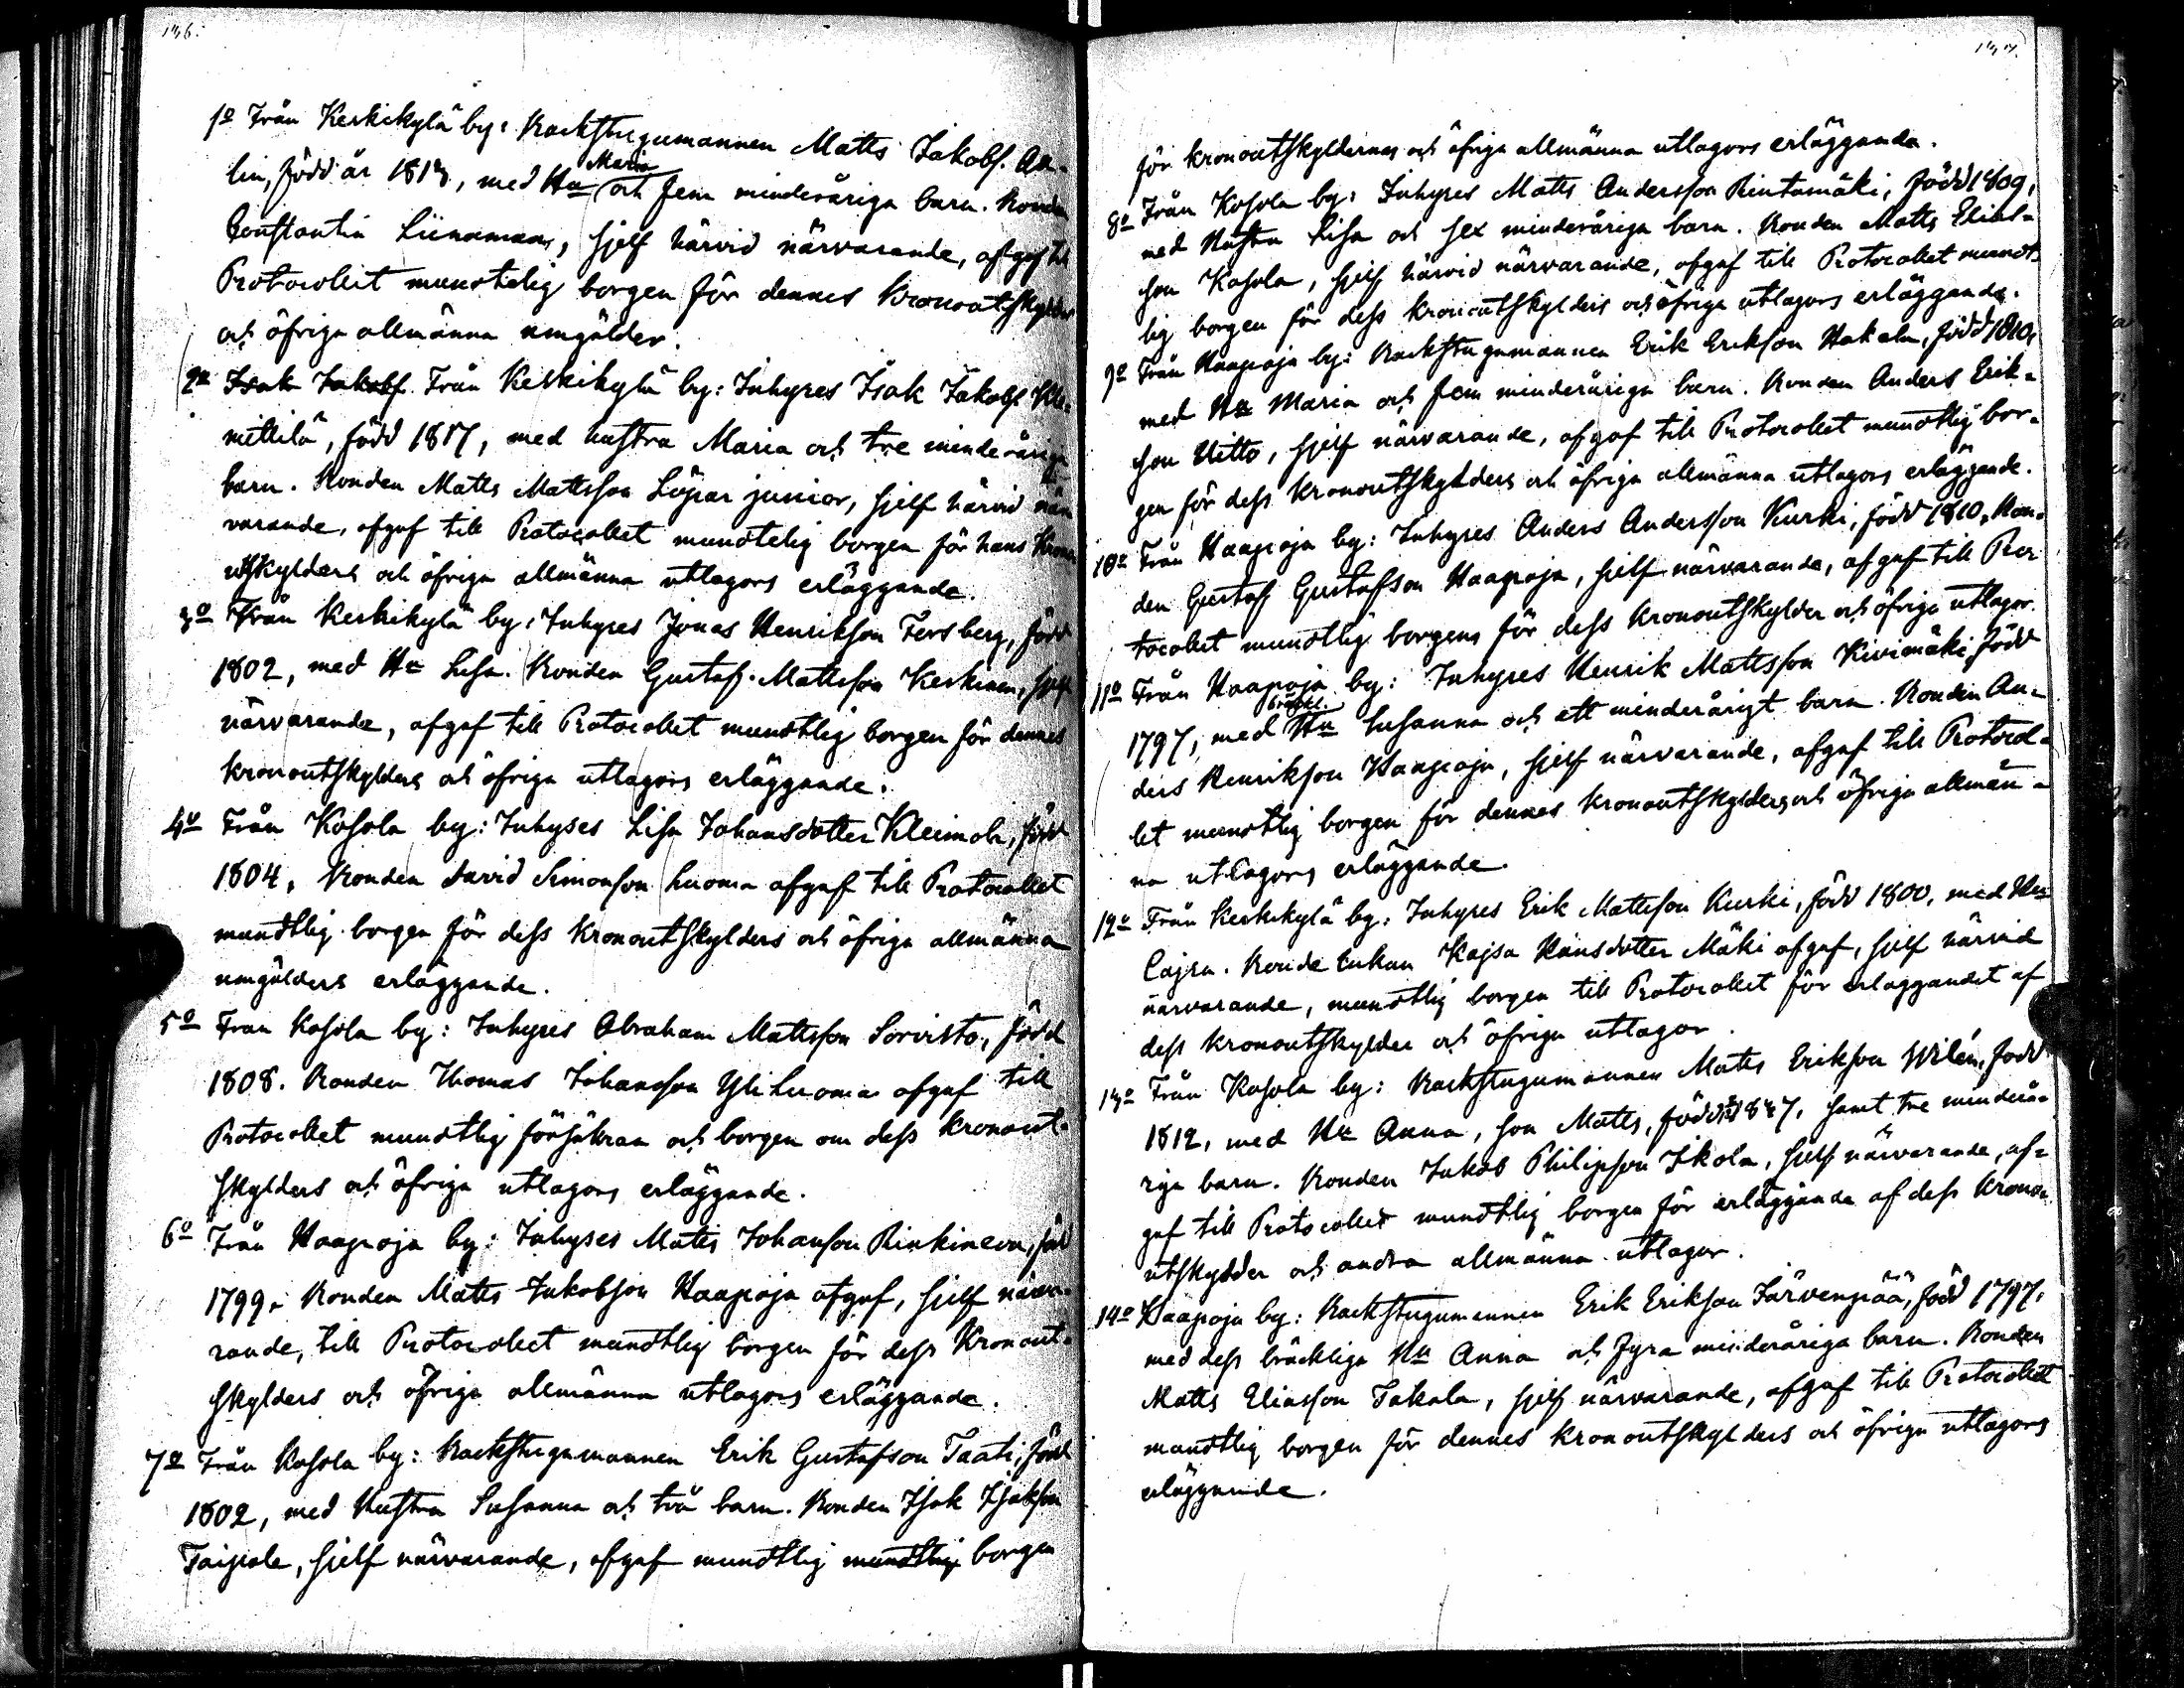 136.
1o Från Keskikylä by: Backstugumannen Matts Jakobs. Ah-
lin, född år 1813, med Hu Maria och fem minderåriga barn. Bonden
Constantin Liinamaa, sjelf härvid närvarande, afgaf till
Protocollet mundtelig borgen för dennes Kronoutskylder
och öfriga allmänna umgälder.
2o Isak Jakobs. Från Keskikylä by: Inhyses Isak Jakobs Kle-
mettilä, född 1817, med hustru Maria och tre minderåriga
barn. Bonden Matts Mattsson Löpar junior, sjelf härvid när
varande, afgaf till Protocollet mundtelig borgen för hans Krono
utskylders och öfriga allmänna utlagors erläggande.
3o Från Keskikylä by: Inhyses Jonas Henrikson Forsberg, född
1802, med Hu Lisa. Bonden Gustaf Mattsson Keskinen, sjelf
närvarande, afgaf till Protocollet mundtlig borgen för dennes
kronoutskylders och öfriga utlagors erläggande.
4o Från Kosola by: Inhyses Lisa Johansdotter Kleimola, född
1804, Bonden David Simonson Luoma afgaf till Protocollet
mundtlig borgen för dess Kronoutskylders och öfriga allmänna
umgälders erläggande.
5o Från Kosola by: Inhyses Abraham Mattsson Sorvisto, född
1808. Bonden Thomas Johansson Yliluoma afgaf till
Protocollet mundtlig försäkran och borgen om dess kronout-
skylders och öfriga utlagors erläggande.
6o Från Haapoja by: Inhyses Matts Johanson Rinkineva, född
1799. Bonden Matts Jakobson Haapoja afgaf, sjelf närva-
rande, till Protocollet mundtlig borgen för dess Kronout-
skylders och öfriga allmänna utlagors erläggande.
7o Från Kosola by: Backstugumannen Erik Gustafson Taati, född
1802, med Hustru Susanna och två barn. Bonden Isak Isakson
Taipale, sjelf närvarande, afgaf mundtlig mundtlig borgen
137.
för kronoutskyldernas och öfriga allmänna utlagors erläggande.
8o Från Kosola by: Inhyses Matts Andersson Rintamäki, född 1809,
med Hustru Lisa och sex minderåriga barn. Bonden Matts Elias-
son Kosola, sjelf härvid närvarande, afgaf till Protocollet mundt-
lig borgen för dess kronoutskylders och öfriga utlagors erläggande.
9o Från Haapoja by: Backstugumannen Erik Erikson Hakala, född 1810,
med Hu Maria och fem minderåriga barn. Bonden Anders Erik-
son Uitto, sjelf närvarande, afgaf till Protocollet mundtlig bor-
gen för dess kronoutskylders och öfriga allmänna utlagors erläggande.
10o Från Haapoja by: Inhyses Anders Andersson Kurki, född 1810, Bon-
den Gustaf Gustafsson Haapoja, sjelf närvarande, afgaf till Pro-
tocollet mundtlig borgens för dess kronoutskylder och öfriga utlagor.
11o Från Haapoja by: Inhyses Henrik Mattsson Kivimäki, född
1797, med bräckl. Hu Susanna och ett minderårigt barn. Bonden An-
ders Henrikson Haapoja, sjelf närvarande, afgaf till Protocol-
let mundtlig borgen för dennes kronoutskylders och öfriga allmän-
na utlagors erläggande.
12o Från Keskikylä by: Inhyses Erik Mattsson Kurki, född 1800, med Hu
Cajsa. Bonde Enkan Kajsa Hansdotter Mäki afgaf, sjelf härvid
närvarande, mundtlig borgen till Protocollet för erläggandet af
dess kronoutskylder och öfriga utlagor.
13o Från Kosola by: Backstugumannen Matts Erikson Wilén, född
1812, med Hu Anna, son Matts, född 1837, samt tre minderå-
riga barn. Bonden Jakob Philipson Ikola, sjelf närvarande, af-
gaf till Protocollet mundtlig borgen för erläggande af dess krono-
utskylder och andra allmänna utlagor.
14o Haapoja by: Backstugumannen Erik Erikson Järvenpää, född 1797,
med dess bräckliga Hu Anna och fyra minderåriga barn. Bonden
Matts Eliasson Takala, sjelf närvarande, afgaf till Protocollet
mundtlig borgen för dennes kronoutskylders och öfriga utlagors
erläggande.